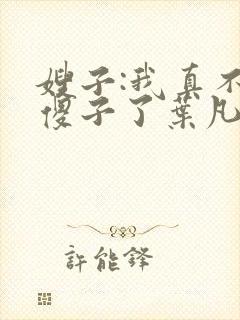 嫂子:我真不
傻子了葉凡
許能鋒